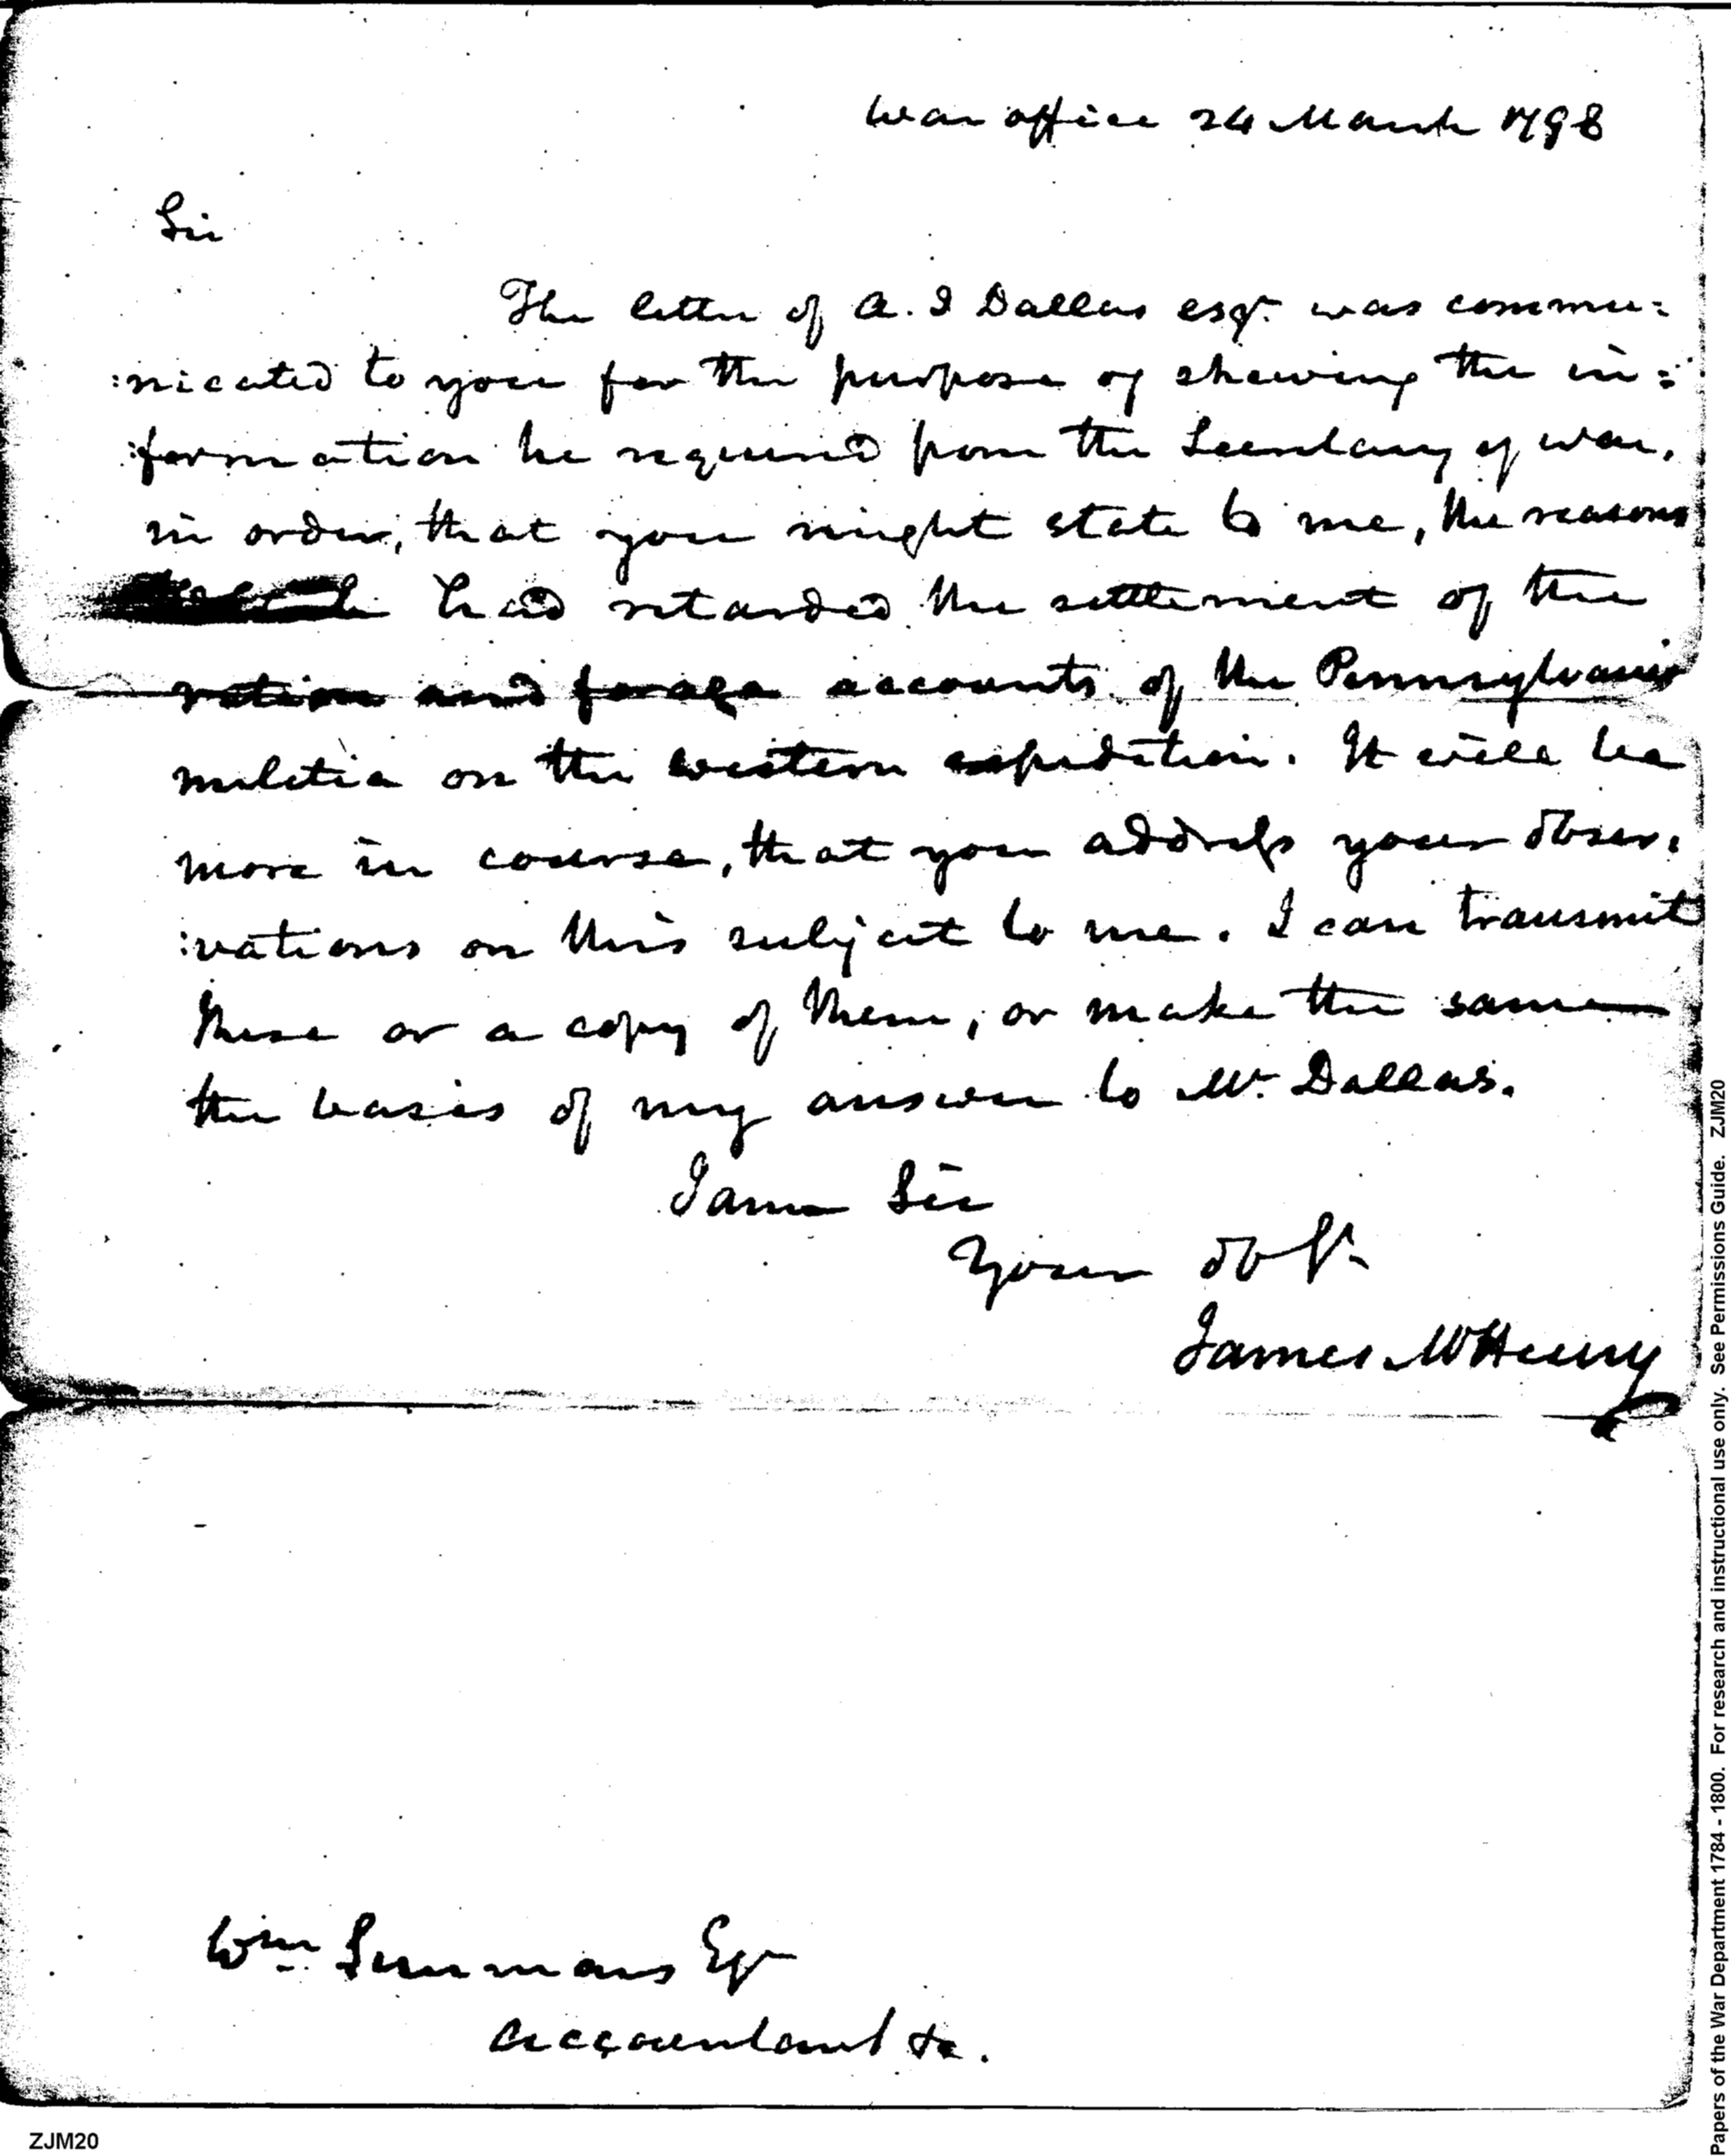 War office 24 March 1798
Sir
The letter of A. I Dallas esqr. was commu=
:nicated to you for the purpose of shewing the in=
:formation he required from the Secretary of war,
in order, that you might state to me, the reasons
had retarded the settlement of the
ration and forage accounts of the Pennsylvania
militia on the western expedition. It will be
more in course, that you address your obser:
:vations on this subject to me. I can transmit
these or a copy of them, or make the same
the basis of my answer to Mr. Dallas.
I am Sir
Your ob st
James McHenry
Wm Simmons Esqr
Accountant &c.
ZJM20
Papers of the War Department 1784 - 1800. For research and instructional use only. See Permissions Guide. ZJM20